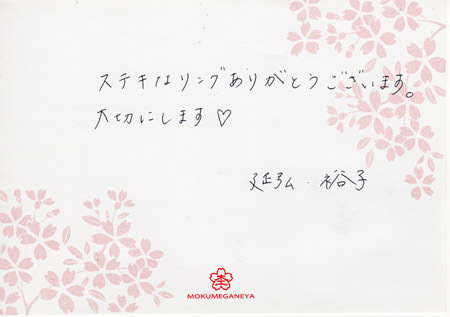 ステキなリングありがとうございます。
大切にします♡
延弘 裕子
杢
MOKUMEGANEYA